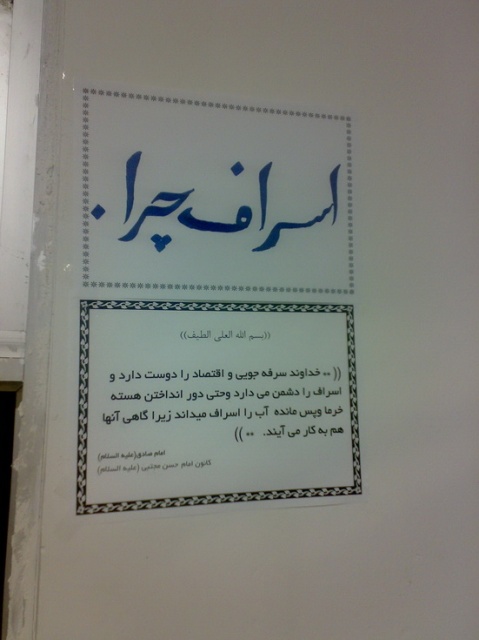 اسراف چرا.
((بسم الله العلی الطیف))
(( ** خداوند سرفه جویی و اقتصاد را دوست دارد و
اسراف را دشمن می دارد وحتی دور انداختن هسته
خرما وپس مانده آب را اسراف میداند زیرا گاهی آنها
هم به کار می آیند. ** ))
امام صادق(علیه السلام)
کانون امام حسن مجتبی (علیه السلام)